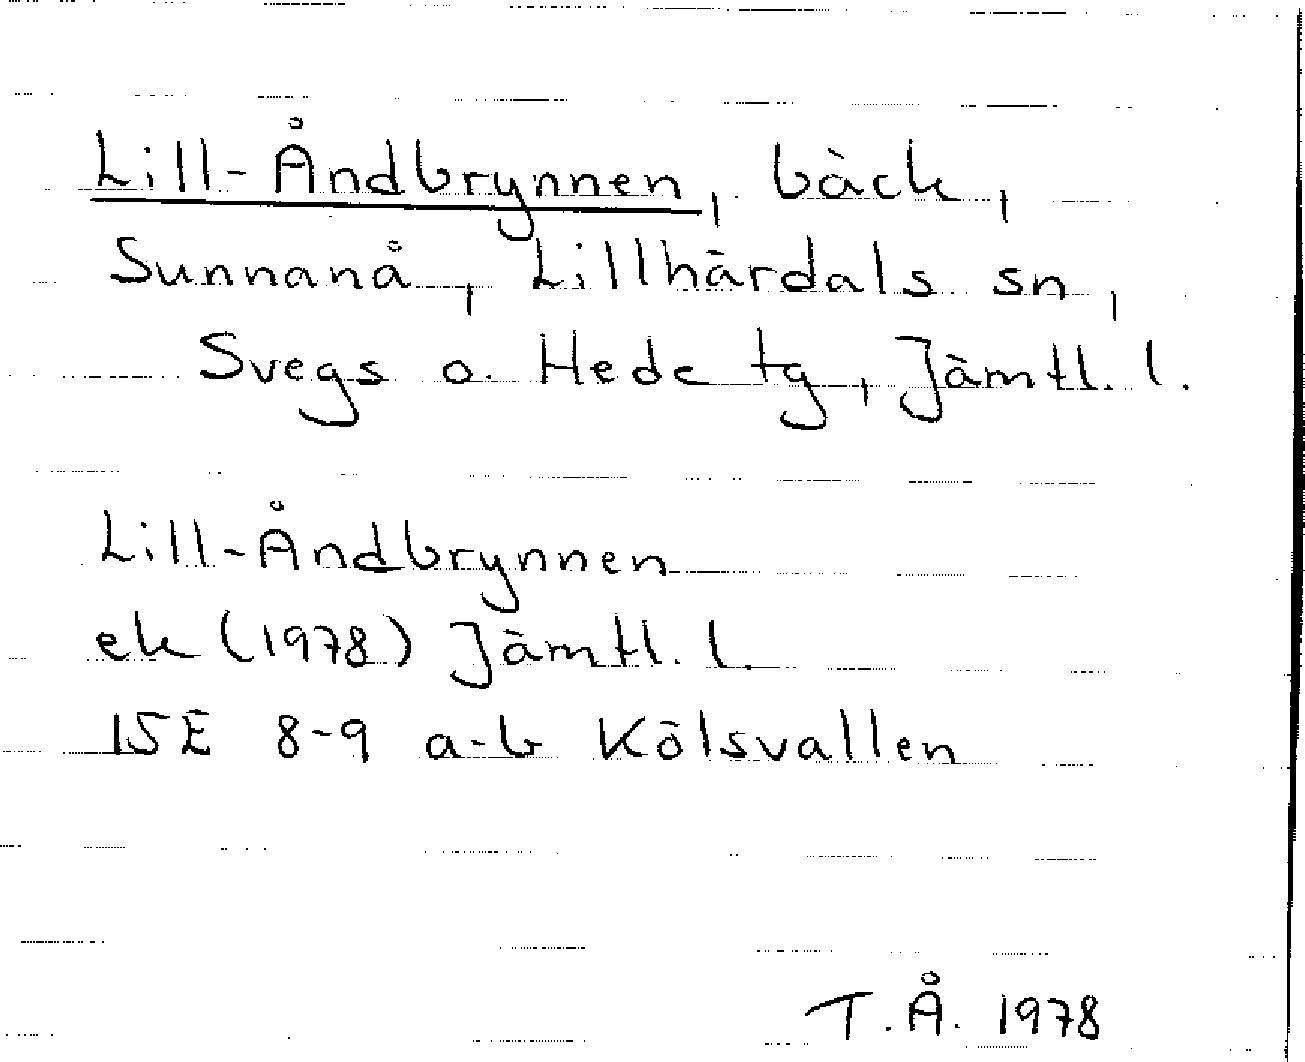 Lill-Åndbrynnen, bäck,
Sunnanå, Lillhärdals sn,
Svegs o. Hede tg, Jämtl. l.
Lill-Åndbrynnen
ek (1978) Jämtl. l.
15E 8-9 a-b Kölsvallen
T.Å. 1978